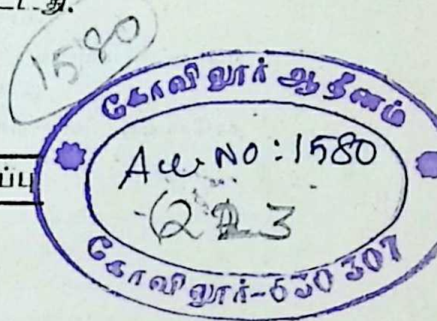 டது.
1580
கோவிலூர் ஆதீனம்
ப்பு
Acc NO : 1580
கோவிலூர்-630 307